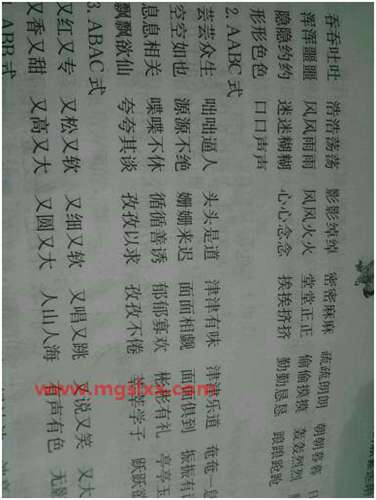 吞吞吐吐 浩浩荡荡 影影绰绰 密密麻麻 疏疏朗朗 朝朝暮暮
浑浑噩噩 风风雨雨 风风火火 堂堂正正 偷偷摸摸 轰轰烈烈
隐隐约约 迷迷糊糊 心心念念 挨挨挤挤 勤勤恳恳 踉踉跄跄
形形色色 口口声声
2. AABC式
芸芸众生 咄咄逼人 头头是道 津津有味 津津乐道 奄奄一息
空空如也 源源不绝 姗姗来迟 面面相觑 面面俱到 振振有词
息息相关 喋喋不休 循循善诱 郁郁寡欢 彬彬有礼 亭亭玉
飘飘欲仙 夸夸其谈 孜孜以求 孜孜不倦 莘莘学子 跃跃欲
3. ABAC式
又红又专 又松又软 又细又软 又唱又跳 又说又笑 又大
又香又甜 又高又大 又圆又大 人山人海 有声有色 无
ABB式